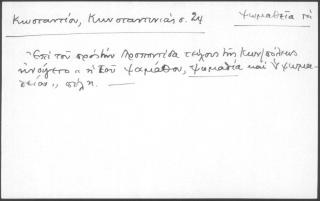 Κωσταντίου, Κωνσταντινιάς σ. 24
Ψωμαθεῖα τὰ
Ἐπὶ τοῦ πρὸς τὴν Προποντίδα τείχους τῆς Κων/πόλεως
ἠνοίγετο " ἡ τοῦ Ψαμάθου, Ψωμαθία καὶ Ψωμα-
θείου " πύλη.